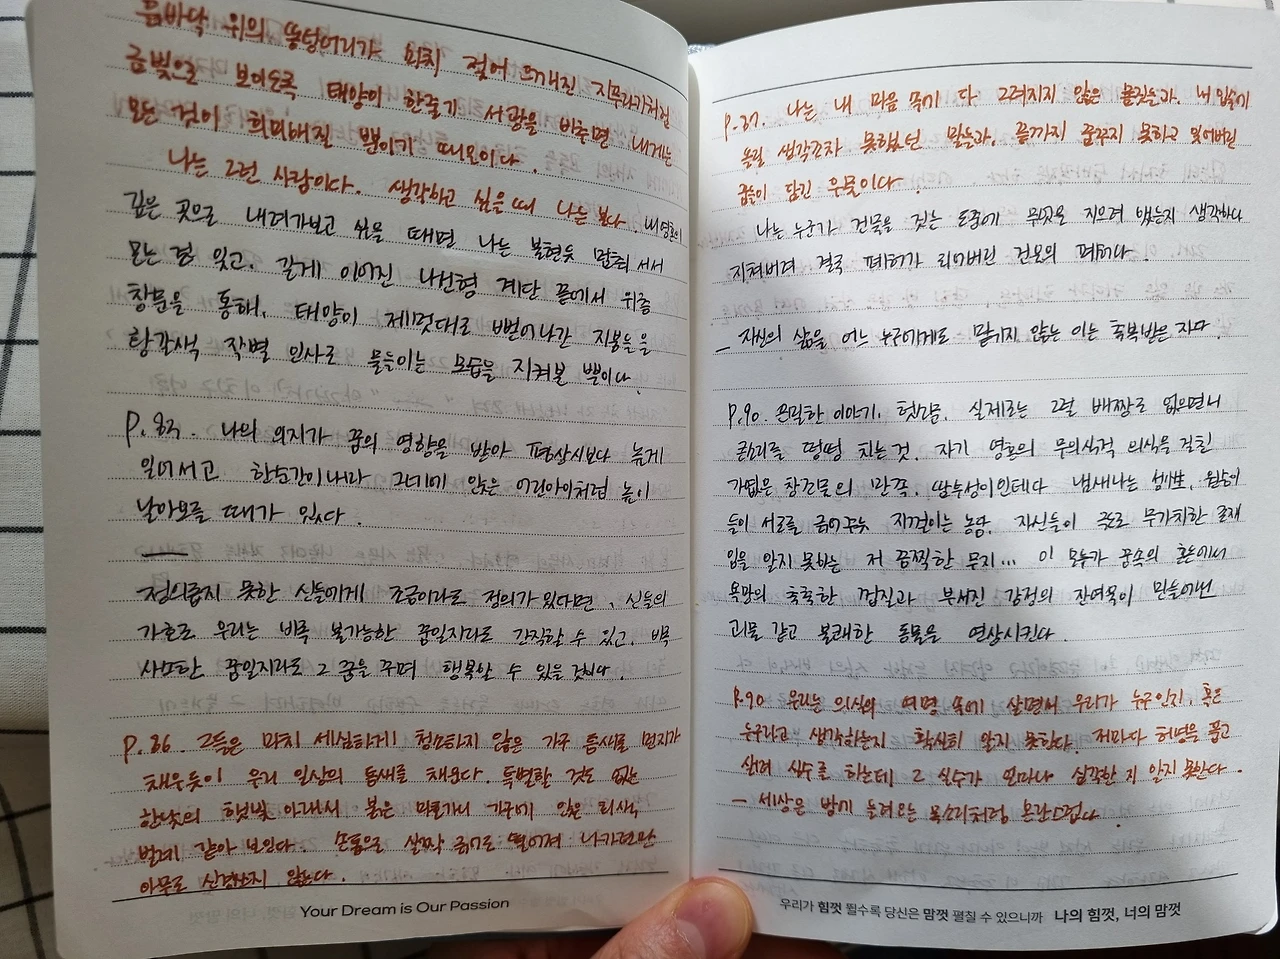 위의 뚱덩어리가 젖어 뜨개진 지푸라기처럼
금빛으로 보이도록 태양이 한줄기 서광을 비추면 내게는
모든 것이 희미해질 뿐이기 때문이다.
나는 그런 사람이다. 생각하고 싶을 때 나는 본다. 내 영혼의
깊은 곳으로 내려가보고 싶을 때면 나는 불현듯 멈춰 서서
모든 걸 잊고, 길게 이어진 나선형 계단 끝에서 위층
창문을 통해, 태양이 제멋대로 뻗어나간 지붕들을
황갈색 작별 인사로 물들이는 모습을 지켜볼 뿐이다.
나의 의지가 꿈의 영향을 받아 평상시보다 높게
일어서고 한순간이나마 그네에 앉은 어린아이처럼 높이
날아오를 때가 있다.
정의롭지 못한 신들에게 조금이라도 정의가 있다면, 신들의
가호로 우리는 비록 불가능한 꿈일지라도 간직할 수 있고, 비록
사소한 꿈일지라도 그 꿈을 꾸며 행복할 수 있을 것이다.
p. 86. 그들은 마치 세심하게 청소하지 않은 가구 틈새로 먼지가
채우듯이 우리 일상의 틈새를 채운다. 특별할 것도 없는
한낮의 햇빛 아래서 붉은 마호가니 가구에 앉은 회색
벌레 같아 보인다. 손톱으로 살짝 긁어도 떨어져 나가겠지만
아무도 신경쓰지 않는다.
Your Dream is Our Passion
p. 87. 나는 내 마음 속에 다 그려지지 않은 몸짓들과, 내 입술에
올릴 생각조차 못했던 말들과, 끝까지 꿈꾸지 못하고 잊어버린
꿈들이 담긴 우물이다.
나는 누군가 건물을 짓는 도중에 무엇을 지으려 했는지 생각하다
지쳐버려 결국 폐허가 되어버린 건물의 폐허다.
— 자신의 삶을 어느 누구에게도 맡기지 않는 이는 축복받은 자다.
p. 90. 은밀한 이야기, 헛소문, 실제로는 그럴 배짱도 없으면서
큰소리를 떵떵 치는 것, 자기 영혼의 무의식적 의식을 걸친
가엾은 창조물의 만족, 땀투성이인데다 냄새나는 원숭이
들이 서로를 긁어주듯 지껄이는 농담, 자신들이 무가치한 존재
임을 알지 못하는 저 끔찍한 무지... 이 모두가 꿈속의 혼돈에서
욕망의 축축한 껍질과 부서진 감정의 잔여물이 만들어낸
괴물 같고 불쾌한 동물을 연상시킨다.
p. 90. 우리는 의식의 여명 속에 살면서 우리가 누구인지, 혹은
누구라고 생각하는지 확실히 알지 못한다. 저마다 허영을 품고
살며 실수를 하는데 그 실수가 얼마나 심각한 지 알지 못한다.
— 세상은 밤에 들려오는 목소리처럼 혼란스럽다.
우리가 힘껏 뛸수록 당신은 맘껏 펼칠 수 있으니까 나의 힘껏, 너의 맘껏